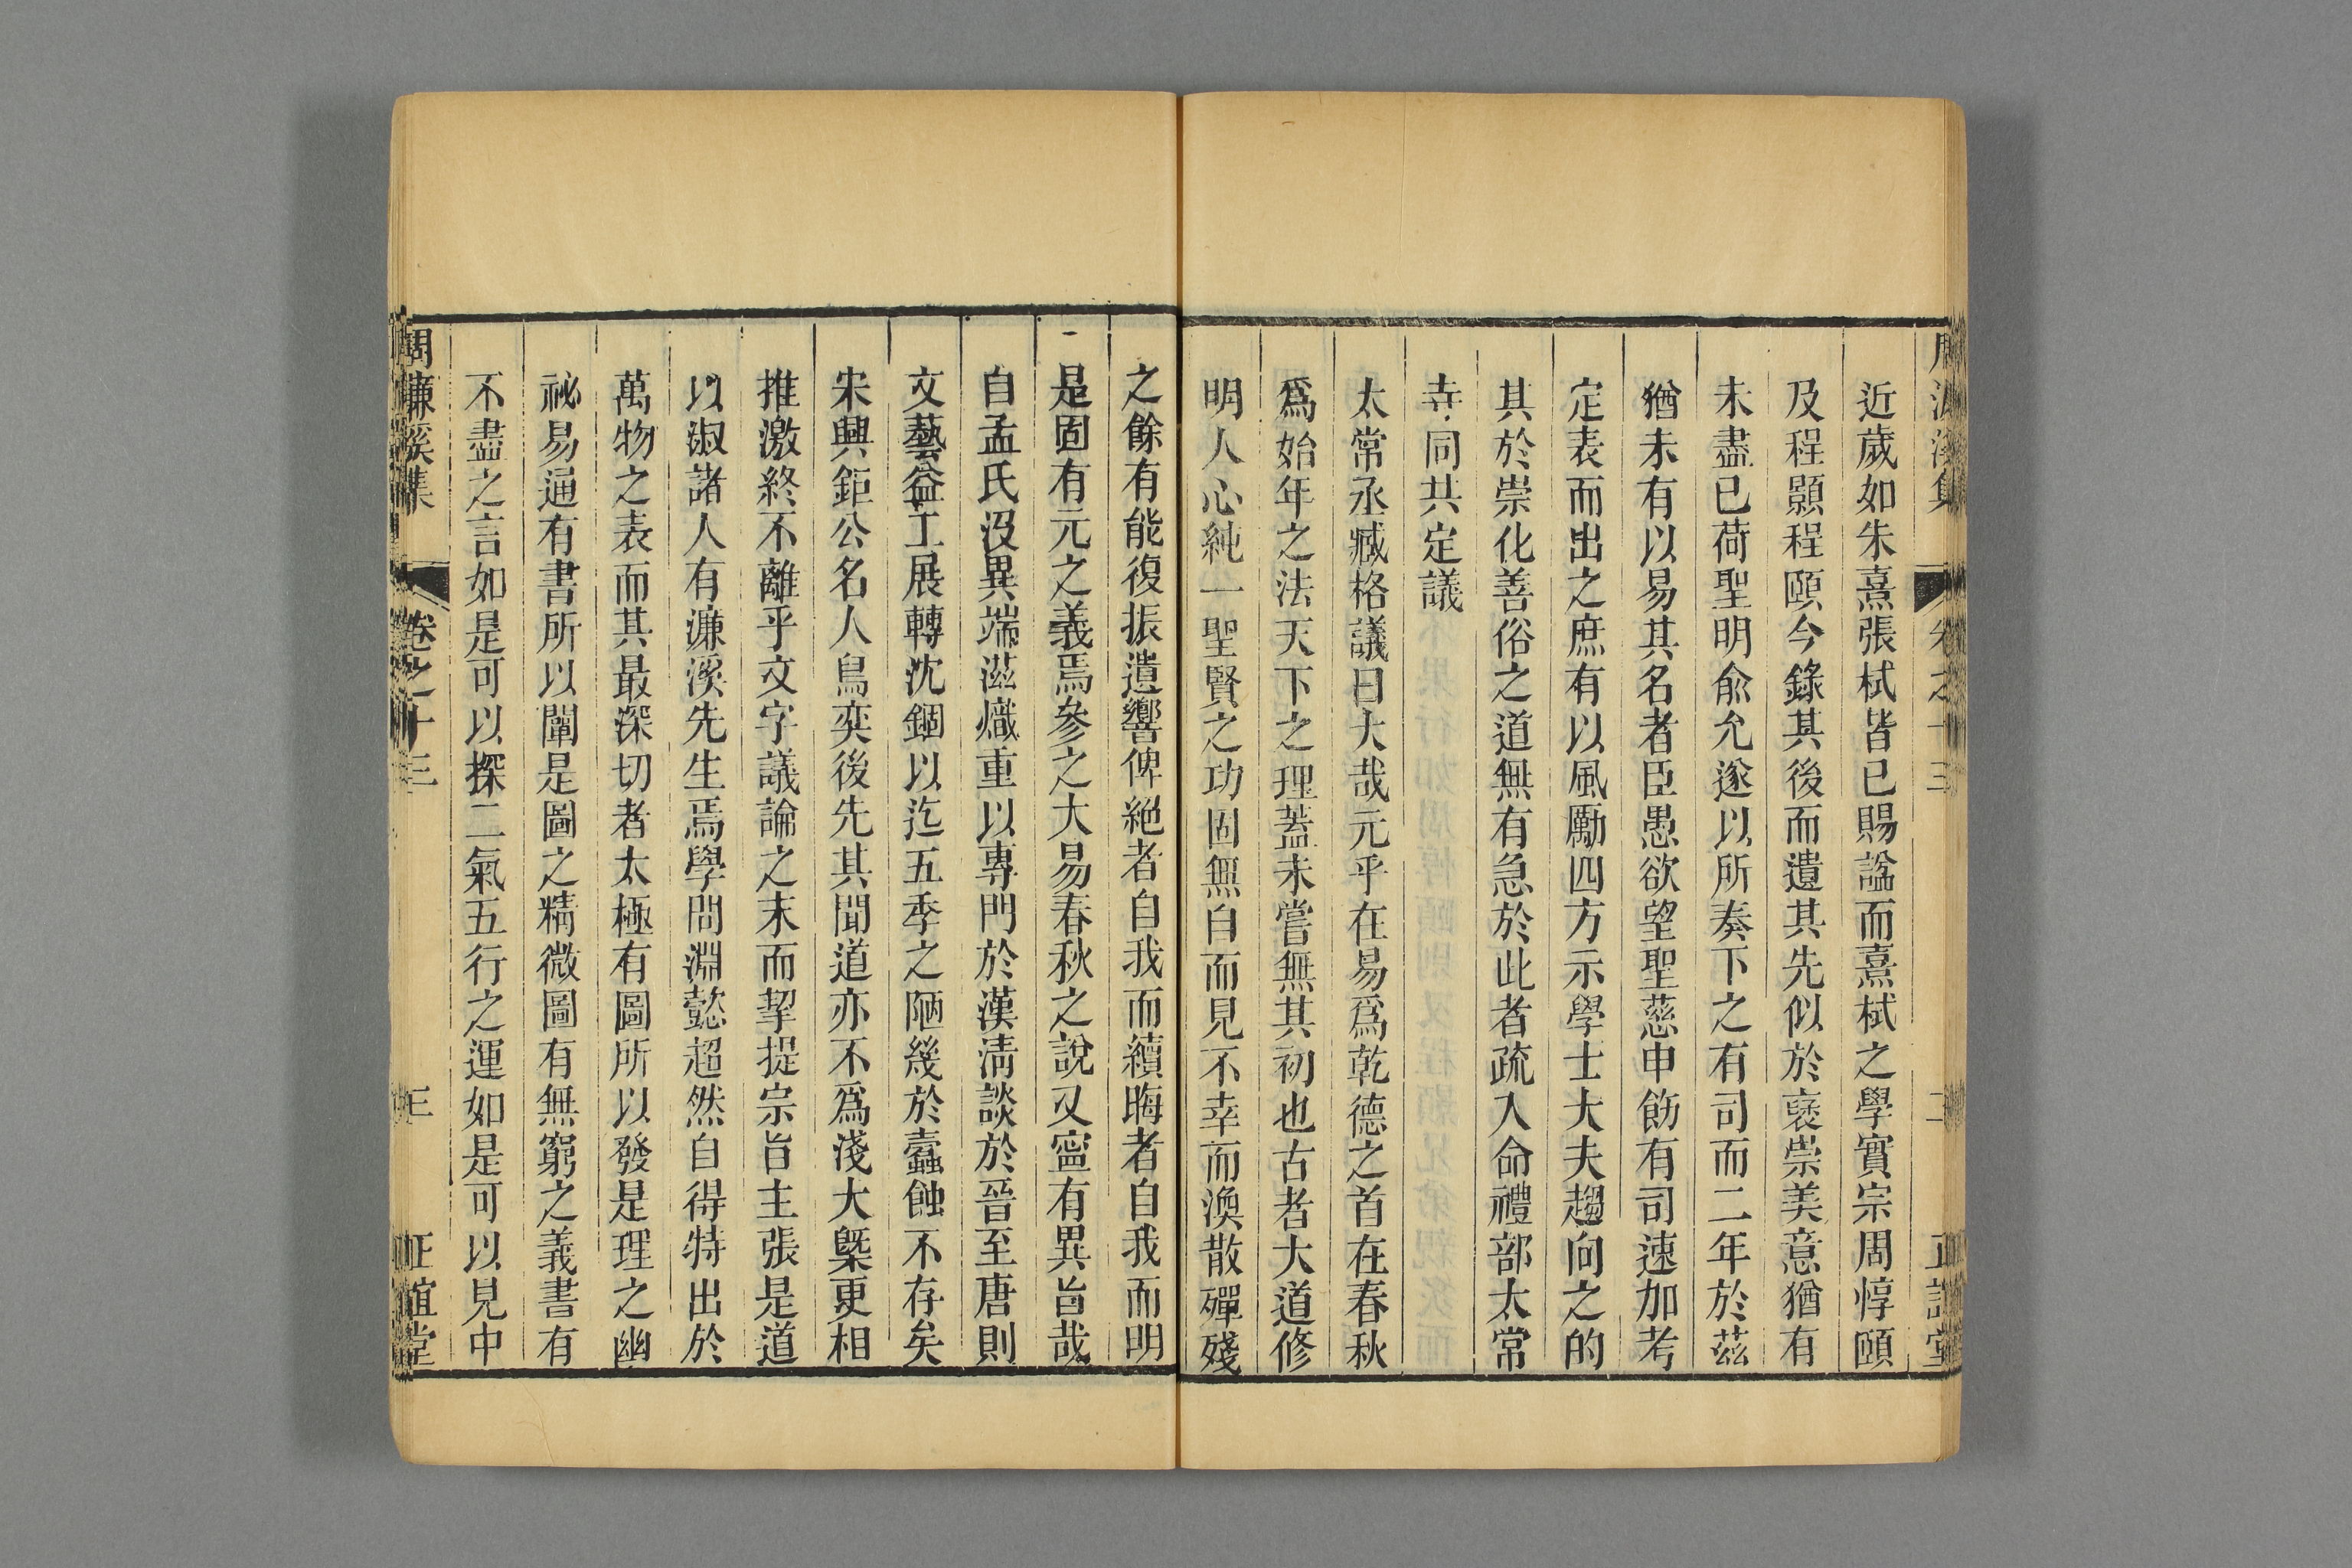 周濂溪集 卷之十三 二 正誼堂
近歲如朱熹張栻皆已賜謚而熹栻之學實宗周惇頤
及程顥程頤今錄其後而遺其先似於褒崇美意猶有
未盡已荷聖明俞允遂以所奏下之有司而二年於茲
猶未有以易其名者臣愚欲望聖慈申飭有司速加考
定表而出之庶有以風勵四方示學士大夫趨向之的
其於崇化善俗之道無有急於此者疏入命禮部太常
寺同共定議
太常丞臧格議曰大哉元乎在易爲乾德之首在春秋
爲始年之法天下之理蓋未嘗無其初也古者大道修
明人心純一聖賢之功固無自而見不幸而渙散殫殘
之餘有能復振遺響俾絶者自我而續晦者自我而明
是固有元之義焉參之大易春秋之說又寍有異旨哉
自孟氏沒異端滋熾重以專門於漢淸談於晉至唐則
文藝益工展轉沈錮以迄五季之陋幾於蠹蝕不存矣
宋興鉅公名人鳥奕後先其聞道亦不爲淺大槩更相
推激終不離乎文字議論之末而挈提宗旨主張是道
以淑諸人有濂溪先生焉學問淵懿超然自得特出於
萬物之表而其最深切者太極有圖所以發是理之幽
祕易通有書所以闡是圖之精微圖有無窮之義書有
不盡之言如是可以探二氣五行之運如是可以見中
周濂溪集 卷之十三 三 正誼堂